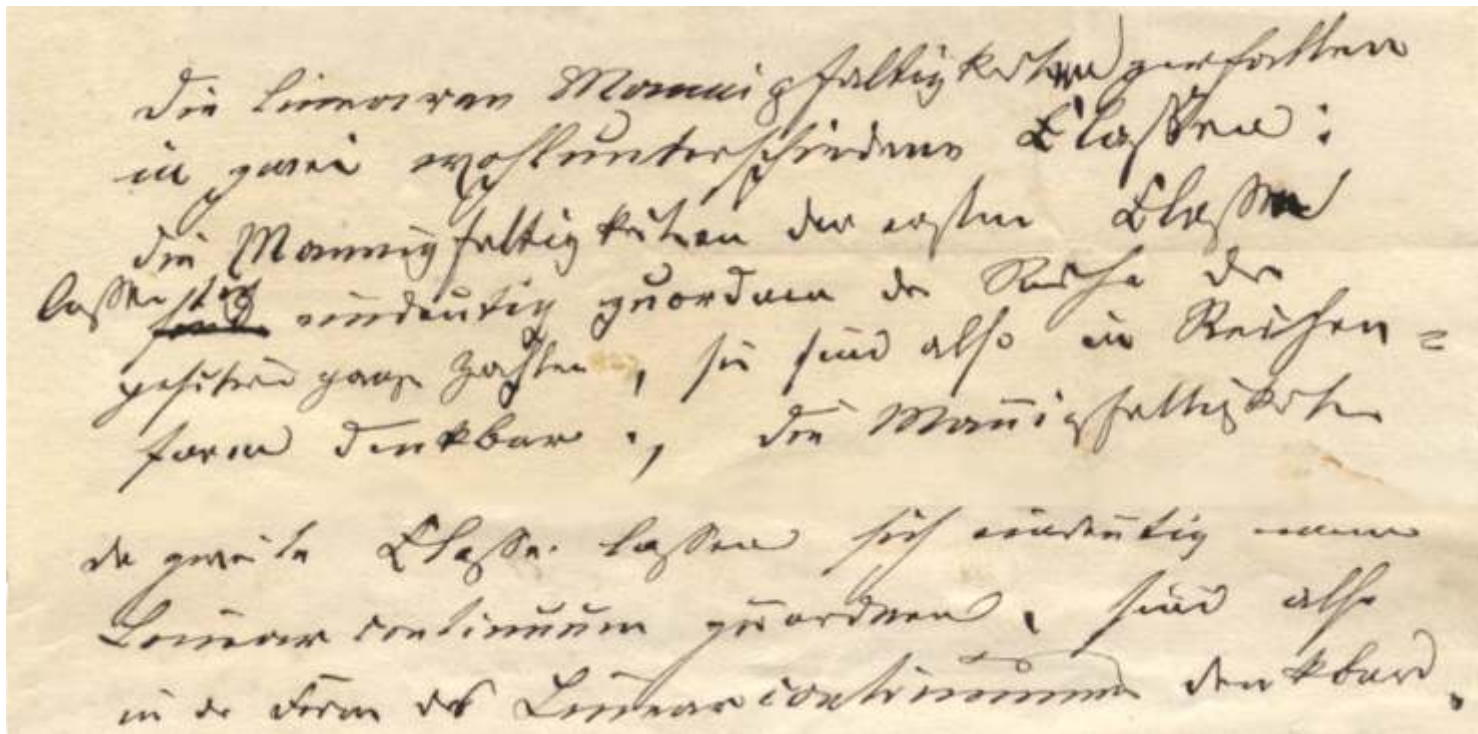 Die linearen Mannigfaltigkeiten zerfallen
in zwei wohlunterschiedene Classen:
die Mannigfaltigkeiten der ersten Classe
lassen sich eindeutig zuordnen der Reihe der
positiven ganzen Zahlen, sie sind also in Reihen=
form denkbar., die Mannigfaltigkeiten
der zweiten Classe lassen sich eindeutig einem
Linearcontinuum zuordnen, sind also
in der Form des Linearcontinuums denkbar.